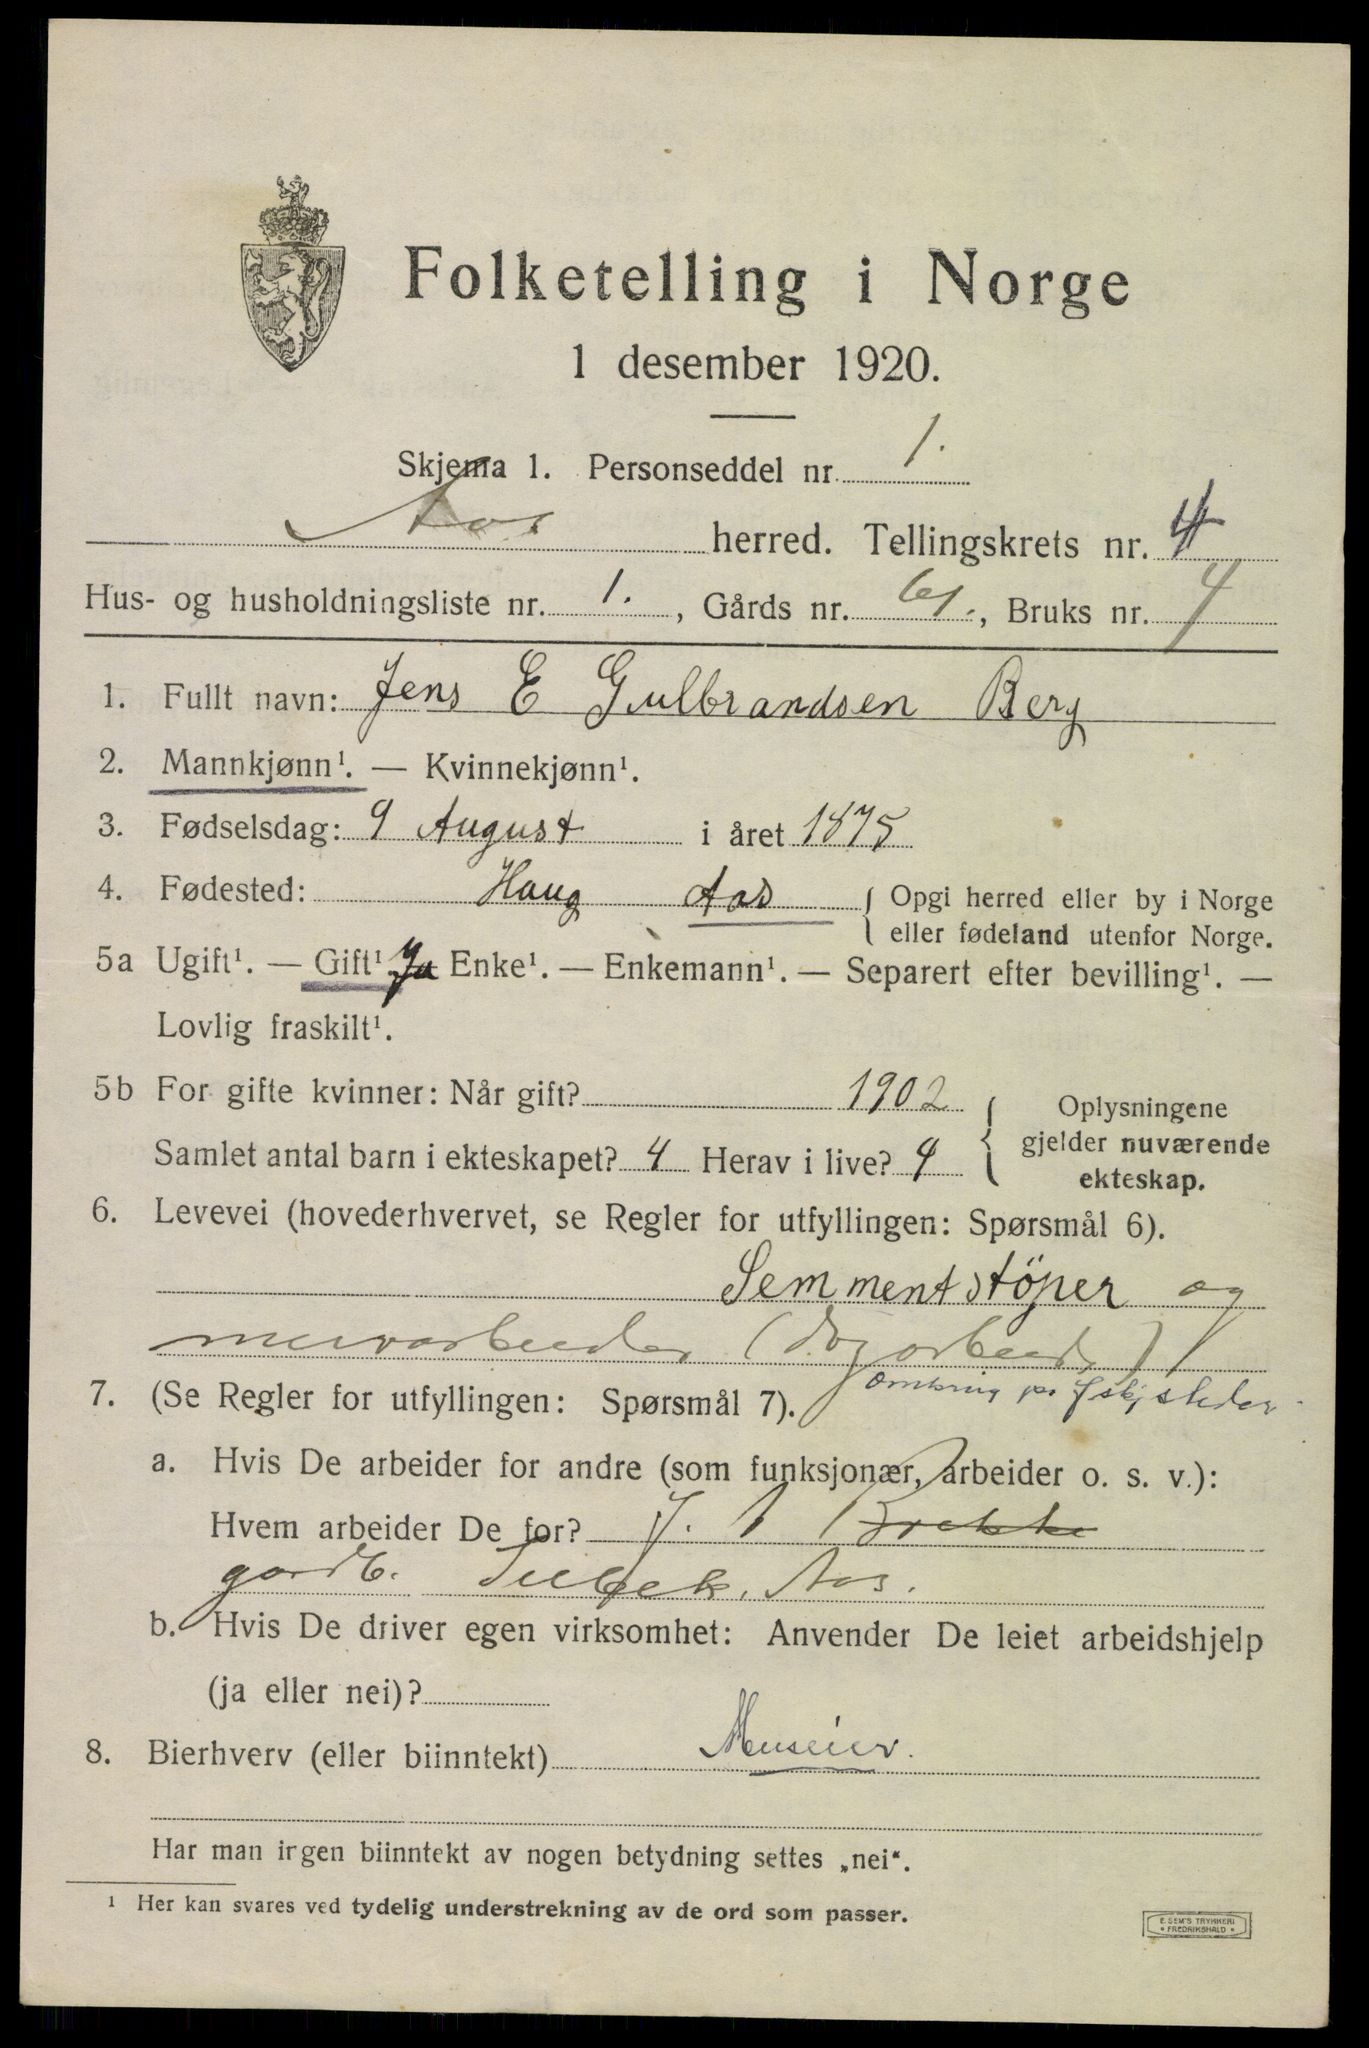 Folketelling i Norge
1 desember 1920.
Skjema 1. Personseddel nr. 1.
Aas herred. Tellingskrets nr. 4
Hus- og husholdningsliste nr. 1., Gårds nr. 61., Bruks nr. 4
1. Fullt navn: Jens E Gulbrandsen Berg
2. Mannkjønn¹. — Kvinnekjønn¹.
3. Fødselsdag: 9 August i året 1875
4. Fødested: Haug Aas { Opgi herred eller by i Norge
eller fødeland utenfor Norge.
5a Ugift¹. — Gift¹ Ja Enke¹. — Enkemann¹. — Separert efter bevilling¹. —
Lovlig fraskilt¹.
5b For gifte kvinner: Når gift? 1902
Samlet antal barn i ekteskapet? 4 Herav i live? 4
{ Oplysningene
gjelder nuværende
ekteskap.
6. Levevei (hovederhvervet, se Regler for utfyllingen: Spørsmål 6).
Semmentstöper og
murarbeider (
7. (Se Regler for utfyllingen: Spørsmål 7).
a. Hvis De arbeider for andre (som funksjonær, arbeider o. s. v.):
Hvem arbeider De for? J. Brekke
gardb. Aas.
b. Hvis De driver egen virksomhet: Anvender De leiet arbeidshjelp
(ja eller nei)?
8. Bierhverv (eller biinntekt) Huseier.
Har man irgen biinntekt av nogen betydning settes „nei“.
¹ Her kan svares ved tydelig understrekning av de ord som passer.
E. SEM'S TRYKKERI
• FREDRIKSHALD •